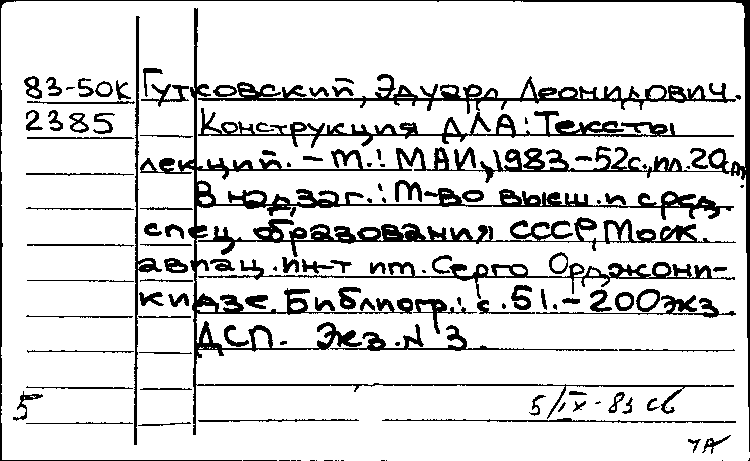 83-50К Гутковский, Эдуард Леонидович.
2385 Конструкция ДЛА: Тексты
лекций. - М.: МАИ, 1983. - 52с., ил. 20см.
В надзаг.: М-во высш. и сред.
спец. образования СССР, Моск.
авиац. ин-т им. Серго Орджони-
кидзе. Библиогр.: с. 51. - 200экз.
ДСП. Экз. N 3.
5 5/IX-83